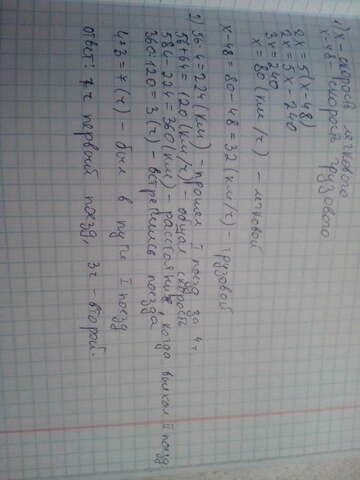 1) x - скорость легкового
x-48 - скорость грузового
2x = 5(x-48)
2x = 5x - 240
3x = 240
x = 80 (км/ч) - легковой
x-48 = 80-48 = 32 (км/ч) - грузовой
2) 56·4 = 224 (км) - прошел I поезд за 4ч
56+64 = 120 (км/ч) - общая скорость
584-224 = 360 (км) - расстояние, когда выехал II поезд
360:120 = 3 (ч) - встретились поезда
4+3 = 7 (ч) - был в пути I поезд
ответ: 7ч первый поезд, 3ч - второй.